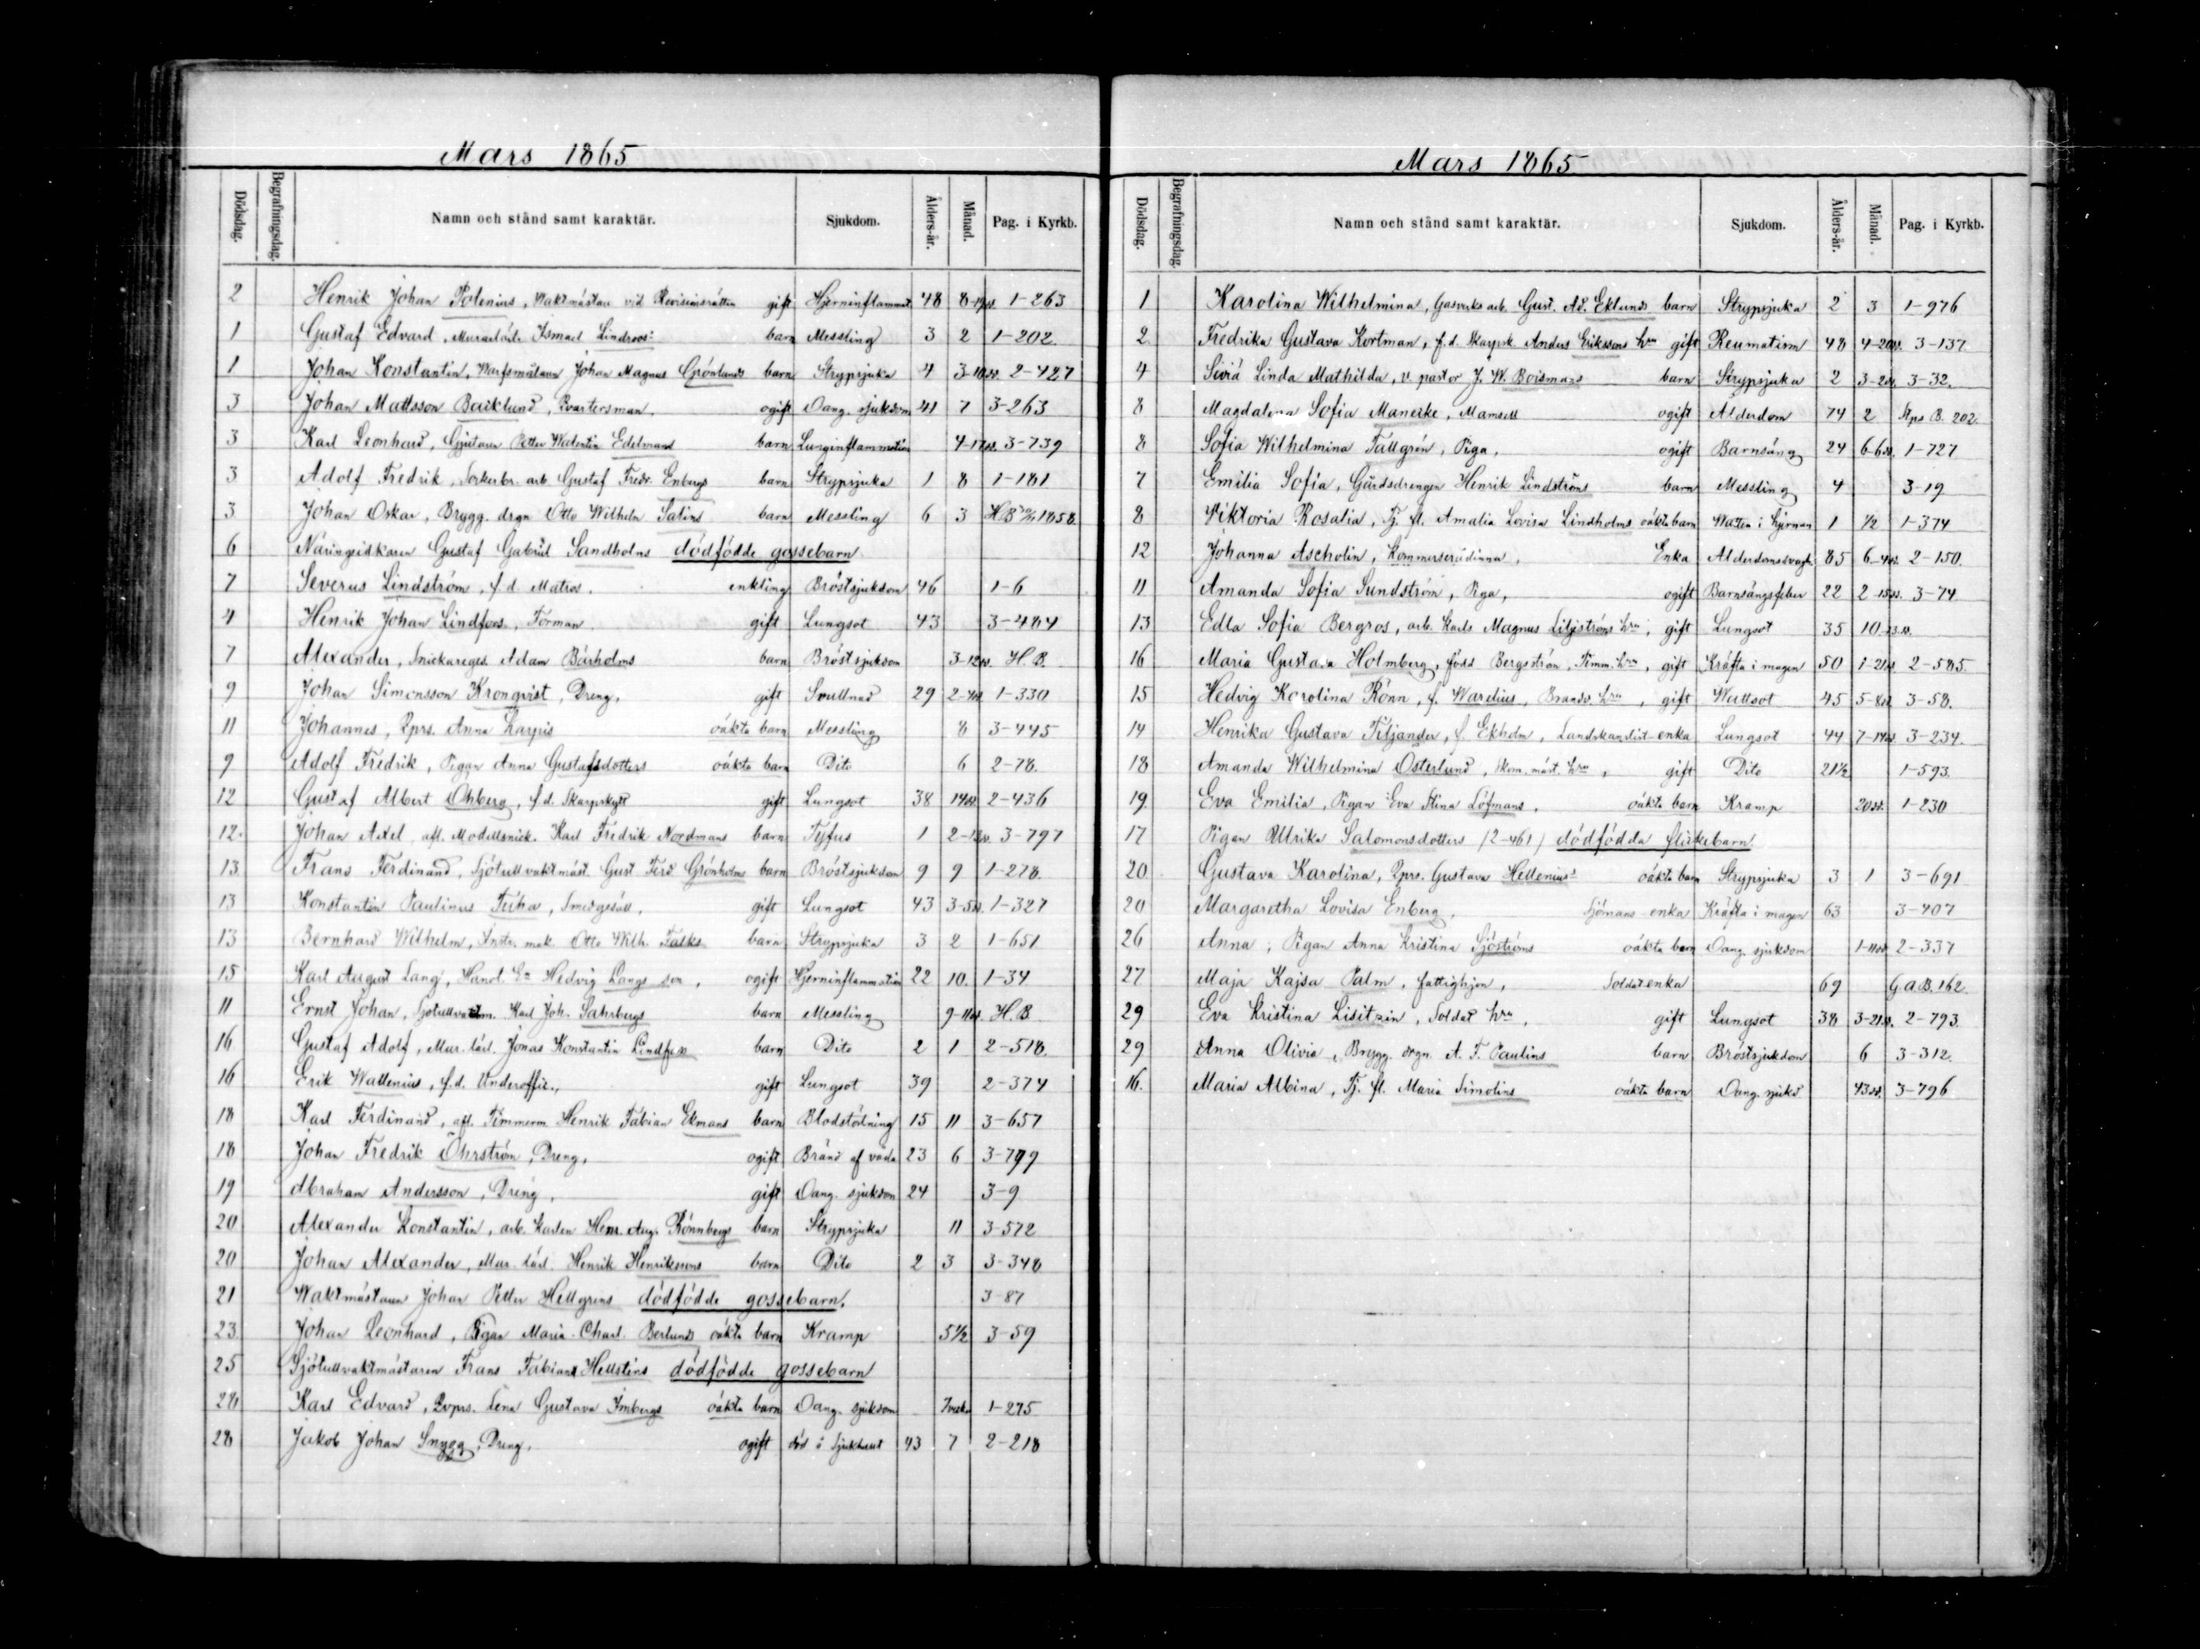 Mars 1865
Dödsdag. Begrafningsdag. Namn och stånd samt karaktär. Sjukdom. Ålders-år. Månad. Pag. i Kyrkb.
2 Henrik Johan Polenius, Waktmästare vid Revisionsrätten gift Hjerninflammat. 48 8- 1-263
1 Gustaf Edvard, Murarlärl. Ismael Lindroos' barn Messling 3 2 1-202
1 Johan Konstantin, Johan Magnus Grönlunds barn Strypsjuka 4 3-10d. 2-427
3 Johan Mattsson Backlund, Qvartersman, ogift Oang. sjukdom 41 7 3-263
3 Karl Leonhard, Gjutaren Petter Walentin Edelmans barn Lunginflammation 4-17d. 3-739
3 Adolf Fredrik, Sockerbr. arb. Gustaf Fredr. Enbergs barn Strypsjuka 1 8 1-181
3 Johan Oskar, Brygg. drgn Otto Wilhelm Salins barn Messling 6 3 H.B. 1858
6 Näringsidkaren Gustaf Gabriel Sandholms dödfödde gossebarn
7 Severus Lindström, f.d. Matros, enkling Bröstsjukdom 46 1-6
4 Henrik Johan Lindfors, Forman gift Lungsot 43 3-484
7 Alexander, Snickareges. Adam Bärholms barn Bröstsjukdom 3-12d. H.B.
9 Johan Simonsson Kronqvist, Dreng, gift Svullnad 29 2-4d. 1-330
11 Johannes, Qprs. Anna Karpis oäkta barn Messling 8 3-445
9 Adolf Fredrik, Pigan Anna Gustafsdotters oäkta barn Dito 6 2-78.
12 Gustaf Albert Öhberg, f.d. Skarpskytt gift Lungsot 38 14d. 2-436
12. Johan Axel, afl. Modellsnick. Karl Fredrik Nordmans barn Tyfus 1 2-13d. 3-797
13 Frans Ferdinand, Sjötullvaktmäst. Gust Ferd Grönholms barn Bröstsjukdom 9 9 1-278.
13 Konstantin Paulinus Feiha, Smedgesäll, gift Lungsot 43 3-5d. 1-327
13 Bernhard Wilhelm, Instr. mak. Otto Wilh. Falks barn Strypsjuka 3 2 1-651
15 Karl August Lang, Handl. Hedvig Langs son, ogift Hjerninflammation 22 10. 1-34
11 Ernst Johan, Sjötullvaktm. Karl Joh. Sahrbergs barn Messling 9-11d. H.B.
16 Gustaf Adolf, Mur. lärl. Jonas Konstantin Lindfors barn Dito 2 1 2-518.
16 Erik Wallenius, f.d. Underoffic., gift Lungsot 39 2-374
18 Karl Ferdinand, afl. Timmerm Henrik Fabian Ekmans barn Blodstörtning 15 11 3-657
18 Johan Fredrik Öhrström, Dreng, ogift Bränd af våda 23 6 3-799
19 Abraham Andersson, Dreng, gift Oang. sjukdom 24 3-9
20 Alexander Konstantin, arb. karlen Henr. Aug. Rönnbergs barn Strypsjuka 11 3-572
20 Johan Alexander, Mur. lärl. Henrik Henrikssons barn Dito 2 3 3-348
21 Waktmästaren Johan Petter Hellgrens dödfödde gossebarn. 3-87
23 Johan Leonhard, Pigan Maria Charl. Berlunds oäkta barn Kramp 5½ 3-59
25 Sjötullvaktmästaren Frans Fabian Hellstens dödfödde gossebarn
28 Karl Edvard, Qvprs. Lena Gustava Imbergs oäkta barn Oang. sjukdom 1-275
28 Jakob Johan Snygg, Dreng, ogift död å Sjukhuset 43 7 2-218
Mars 1865
Dödsdag. Begrafningsdag. Namn och stånd samt karaktär. Sjukdom. Ålders-år. Månad. Pag. i Kyrkb.
1 Karolina Wilhelmina, Gasverks arb. Gust. Ad. Eklunds barn Strypsjuka 2 3 1-976
2 Fredrika Gustava Kortman, f.d. Skarpsk. Anders Erikssons hru gift Reumatism 48 4-20d. 3-137
4 Siviä Linda Mathilda, v. pastor J. W. Boismans barn Strypsjuka 2 3-2d. 3-32.
8 Magdalena Sofia Maneike, Mamsell ogift Alderdom 74 2 B. 202.
8 Sofia Wilhelmina Tallgrén, Piga, ogift Barnsäng 24 6-6d. 1-727
7 Emilia Sofia, Gårdsdrengen Henrik Lindströms barn Messling 4 3-19
8 Viktoria Rosalia, Tj. fl. Amalia Lovisa Lindholms oäkta barn Watten i hjernan 1 ½ 1-374
12 Johanna Ascholin, Kommerserådinna, Enka Alderdomssvagh. 85 6-4d. 2-150.
11 Amanda Sofia Sundström, Piga, ogift Barnsängsfeber 22 2-15d. 3-74.
13 Edla Sofia Bergros, arb. karls Magnus Liljeströms hru, gift Lungsot 35 10-23d.
16 Maria Gustava Holmberg, född Bergström, Timm. hru, gift Kräfta i magen 50 1-21d. 2-585.
15 Hedvig Karolina Rönn, f. Warelius, Brandv. hru, gift Wattsot 45 5-8d. 3-58.
14 Henrika Gustava Tiljander, f. Ekholm, Landskanslist-enka Lungsot 44 7-14d. 3-234.
18 Amanda Wilhelmina Österlund, Skom. mäst. hru, gift Dito 21½ 1-593.
19. Eva Emilia, Pigan Eva Stina Löfmans, oäkta barn Kramp 20d. 1-230
17 Pigan Ulrika Salomonsdotters (2-461) dödfödda flickebarn
20 Gustava Karolina, Qprs. Gustava Hellenius' oäkta barn Strypsjuka 3 1 3-691
20 Margaretha Lovisa Enberg, Sjömans-enka Kräfta i magen 63 3-407
26 Anna, Pigan Anna Kristina Sjöströms oäkta barn Oang. sjukdom 1-11d. 2-337
27 Maja Kajsa Palm, fattighjon, Soldat enka 69 G.a.B. 162.
29 Eva Kristina Lisitzin, Soldat hru, gift Lungsot 38 3-21d. 2-793.
29 Anna Olivia, Brygg. drgn. A. F. Paulins barn Bröstsjukdom 6 3-312.
16. Maria Albina, Tj. fl. Maria Simolins oäkta barn Oang. sjukd 43d. 3-796